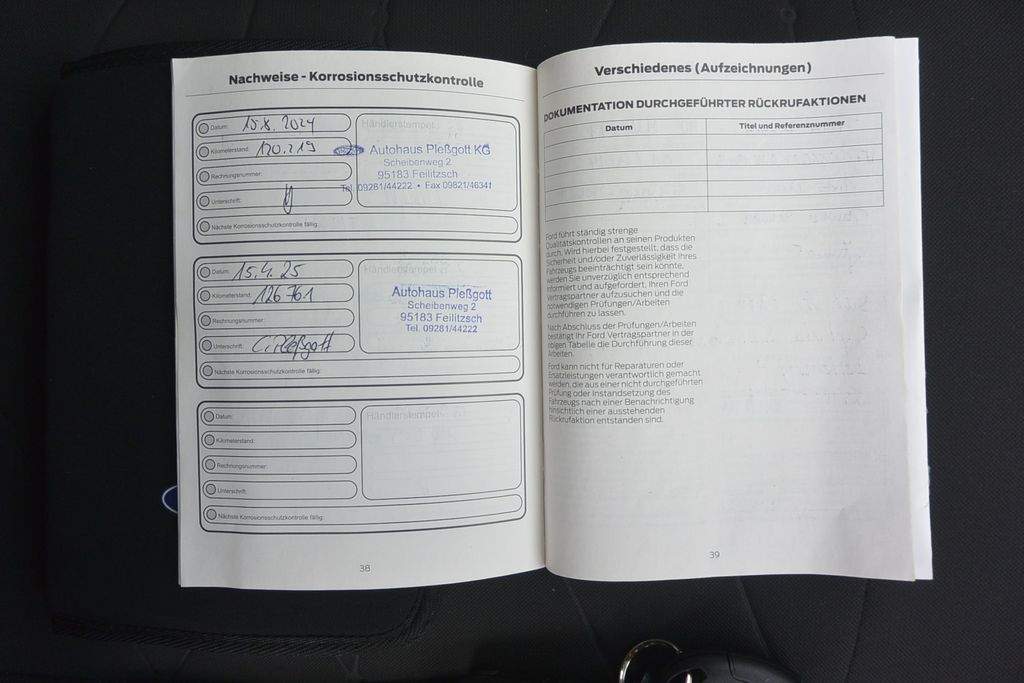 Nachweise - Korrosionsschutzkontrolle
Datum: 15.8. 2024
Händlerstempel:
Kilometerstand: 120.219
Autohaus Pleßgott KG
Scheibenweg 2
Rechnungsnummer:
95183 Feilitzsch
Tel. 09281/44222 • Fax 09821/46341
Unterschrift:
Nächste Korrosionsschutzkontrolle fällig:
Datum: 15.4. 25
Händlerstempel:
Kilometerstand: 126 761
Autohaus Pleßgott
Scheibenweg 2
Rechnungsnummer:
95183 Feilitzsch
Tel. 09281/44222
Unterschrift: C. Pleßgott
Nächste Korrosionsschutzkontrolle fällig:
Datum:
Händlerstempel:
Kilometerstand:
Rechnungsnummer:
Unterschrift:
Nächste Korrosionsschutzkontrolle fällig:
38
Verschiedenes (Aufzeichnungen)
DOKUMENTATION DURCHGEFÜHRTER RÜCKRUFAKTIONEN
Datum Titel und Referenznummer
Ford führt ständig strenge
Qualitätskontrollen an seinen Produkten
durch. Wird hierbei festgestellt, dass die
Sicherheit und/oder Zuverlässigkeit Ihres
Fahrzeugs beeinträchtigt sein könnte,
werden Sie unverzüglich entsprechend
informiert und aufgefordert, Ihren Ford
Vertragspartner aufzusuchen und die
notwendigen Prüfungen/Arbeiten
durchführen zu lassen.
Nach Abschluss der Prüfungen/Arbeiten
bestätigt Ihr Ford Vertragspartner in der
obigen Tabelle die Durchführung dieser
Arbeiten.
Ford kann nicht für Reparaturen oder
Ersatzleistungen verantwortlich gemacht
werden, die aus einer nicht durchgeführten
Prüfung oder Instandsetzung des
Fahrzeugs nach einer Benachrichtigung
hinsichtlich einer ausstehenden
Rückrufaktion entstanden sind.
39